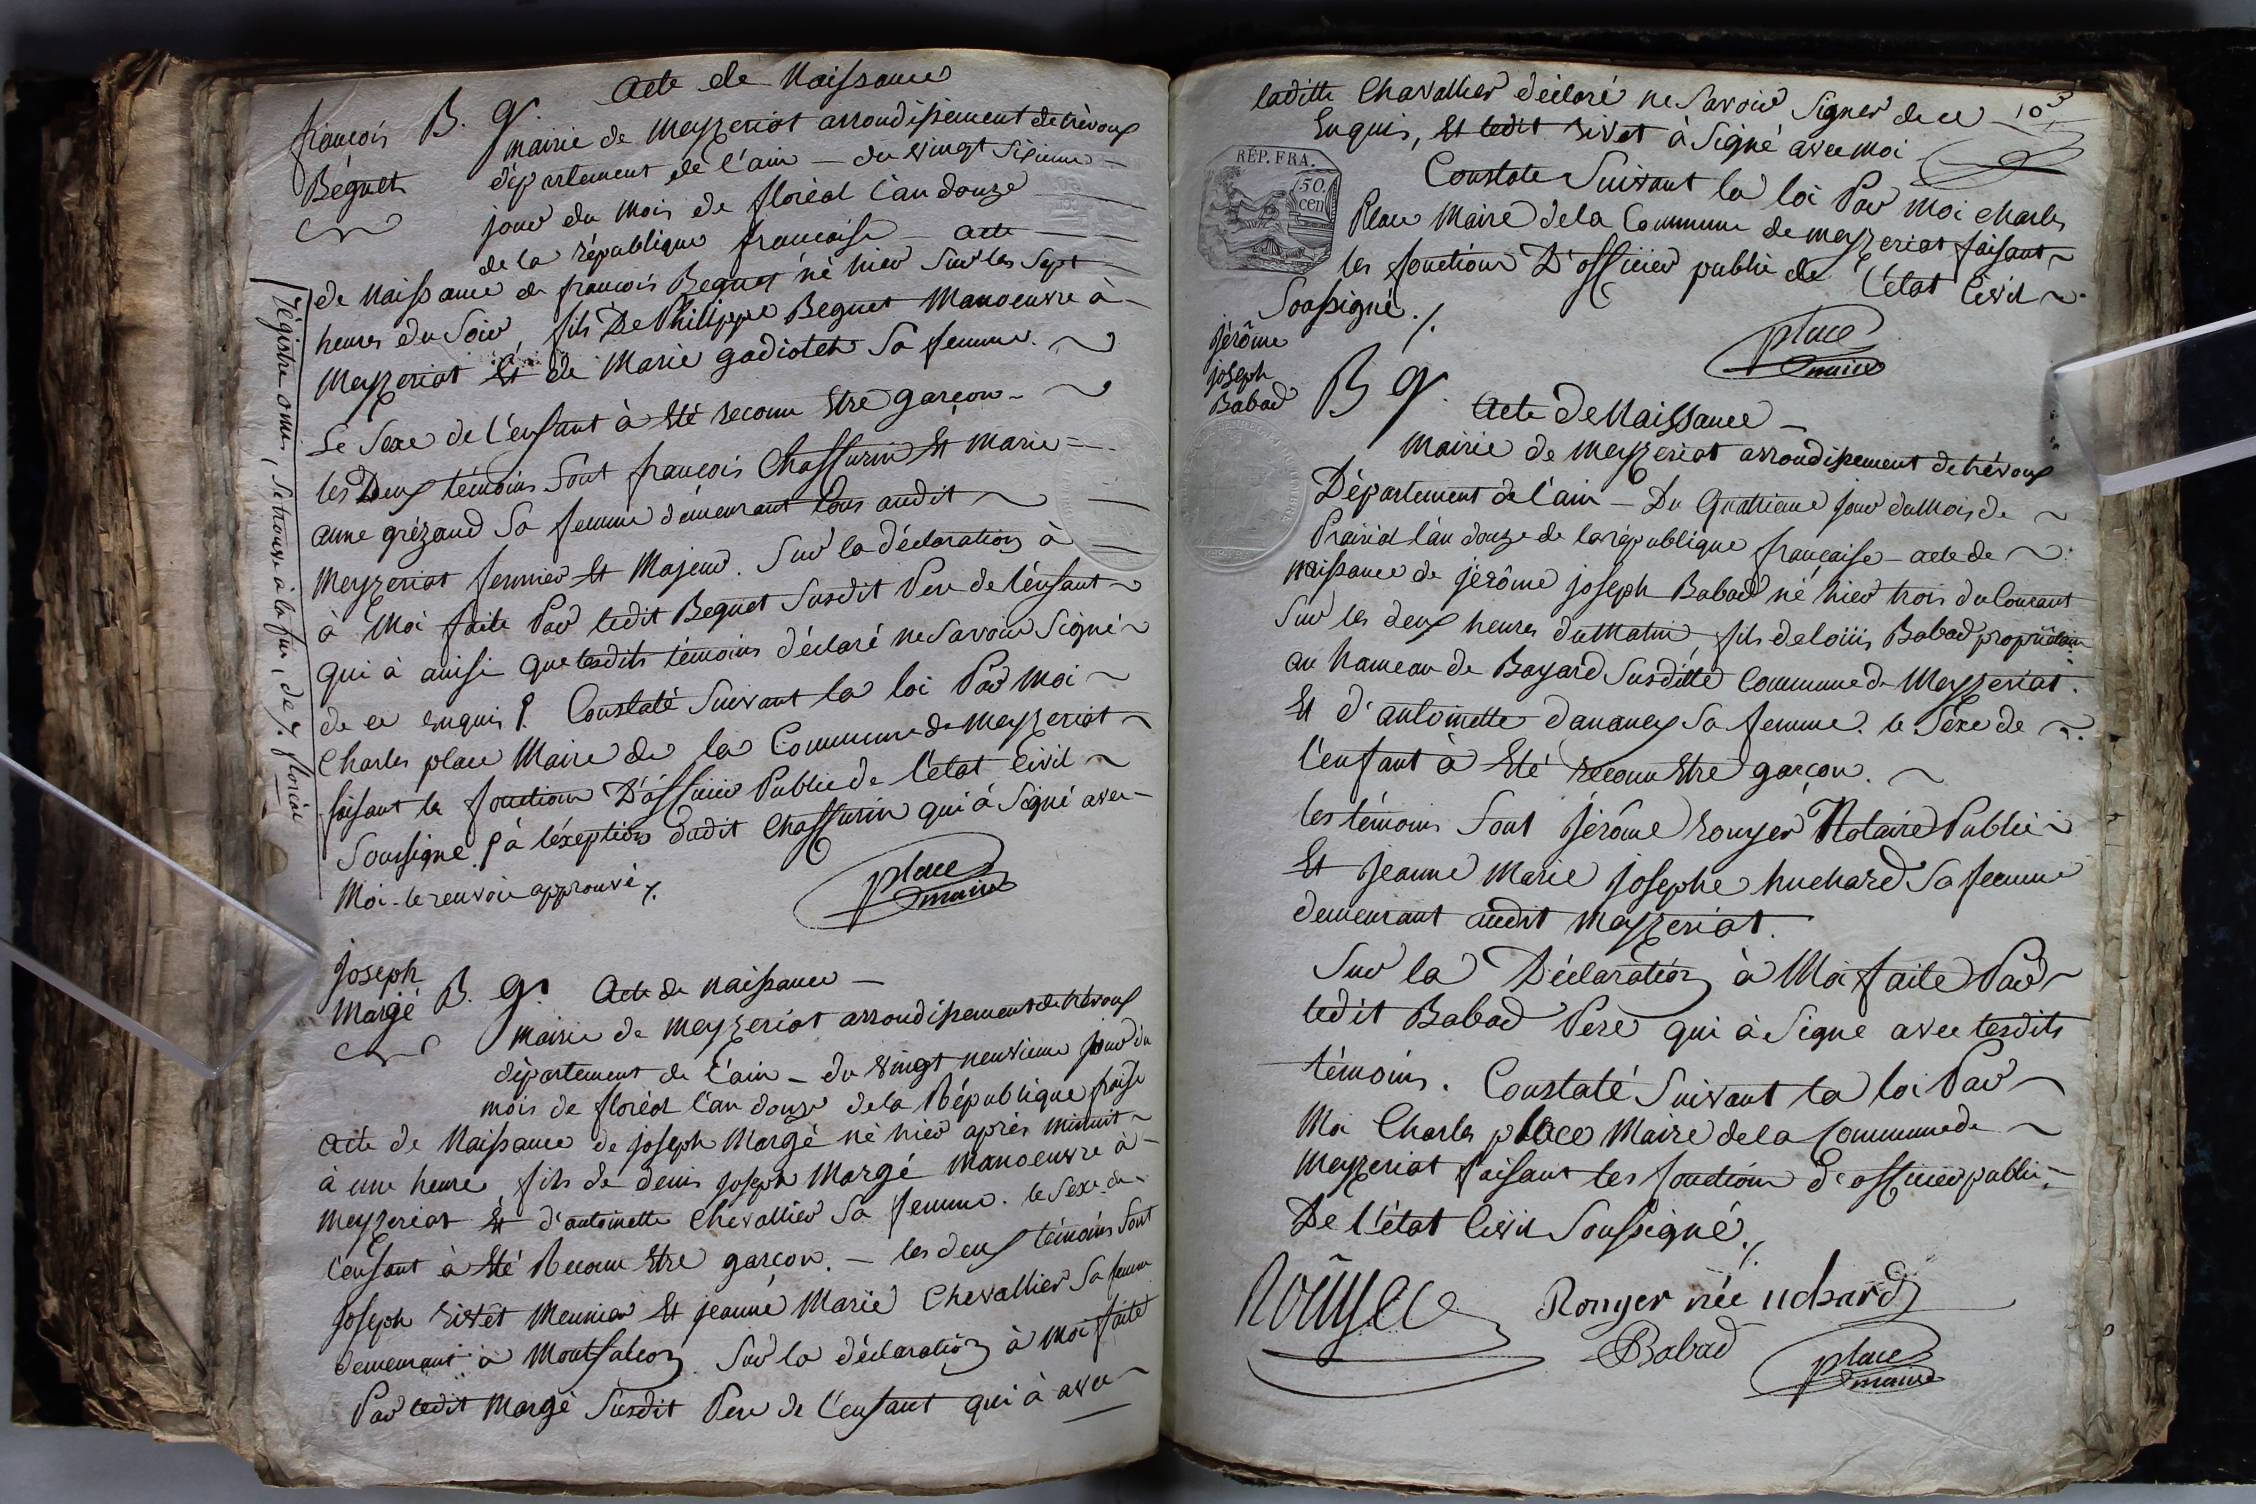 acte de Naissance
françois
Béguet
B. g.
mairie de meyzeriat arrondissement de trévoux
département de l'ain — du vingt sixieme —
jour du mois de floréal l'an douze
de la république francaise acte
de Naissance de françois Beguet né hier sur les sept
heures du soir, fils De Philippe Beguet Manoeuvre à
Meyzeriat Et de Marie gadiolet sa femme.
Le sexe de l'enfant à Eté reconu Etre garçon.
les Deux témoins sont françois Chassurin Et marie =
anne grézaud sa femme démeurant tous audit
Meyzeriat fermier Et Majeur. Sur la déclaration à
à Moi faite Par ledit Beguet Susdit Pere de l'énfant
qui à ainsi que lesdits témoins déclaré ne Savoir Signé
de ce enquis P. Constaté Suivant la loi Par moi
Charles place Maire de la Commune de meyzeriat
faisant les fonctions D'officier Public de l'état Civil
Soussigné. P à léxeption dudit Chassurin qui à Signé avec
Moi - le renvoi approuvé ./.
place
maire
régistre omis, se trouve à la fin, de 7. floréal
joseph
Margé
B. g. Acte de naissance —
mairie de meyzeriat arrondissement de trévoux
département de l'ain — du vingt neuvieme jour du
mois de floréal l'an douze de la République fraise
acte de Naissance de joseph Margé né hier après minuit
à une heure, fils de denis joseph Margé Manoeuvre à
meyzeriat Et d'antoinette Chevallier Sa femme. le Sexe de
l'enfant à Eté Reconu Etre garçon. — les deux témoins sont
joseph rivet Meunier Et jeanne Marie Chevallier sa femme
demeurant à Montfalcon. Sur la déclaration à moi faite
Par ledit Margé Susdit Pere de l'enfant qui à avec
103
laditte Chavallier déclaré ne Savoir Signer de ce
Enquis, Et ledit rivet à Signé avec moi
RÉP. FRA.
50.
cen
Constate Suivant la loi Par moi charles
Place Maire de la Commune de meyzeriat faisant
les fonctions D'officier public de l'état Civil
Soussigné ./.
place
maire
jérôme
joseph
Babad
B g.
Acte De Naissance —
Mairie de meyzeriat arrondissement de trévoux
Département de l'ain — Du Quatrieme jour du Mois de
Prairial l'an douze de la république française — acte de
naissance de jérôme joseph Babad né hier trois du Courant
Sur les deux heures du Matin, fils de loüis Babad propriétaire
au hameau de Bayard Susditte Commune de Meyzeriat.
Et d'antoinette dananey Sa femme. le Séxe de
l'enfant à Eté reconu Etre garçon.
les témoins sont jérôme rouyer Notaire Public
Et jeanne Marie josephe huchard Sa femme
demeurant audit meyzeriat.
Sur la Déclaration à Moi faite Par
ledit Babad Pere qui à Signe avec lesdits
témoins. Constaté Suivant la loi Par
Moi Charles place Maire de la Commune de
meyzeriat faisant les fonctions de officier public
De l'état Civil Soussigné./.
Roüyer
Rouyer née uchard
Babad
place
maire